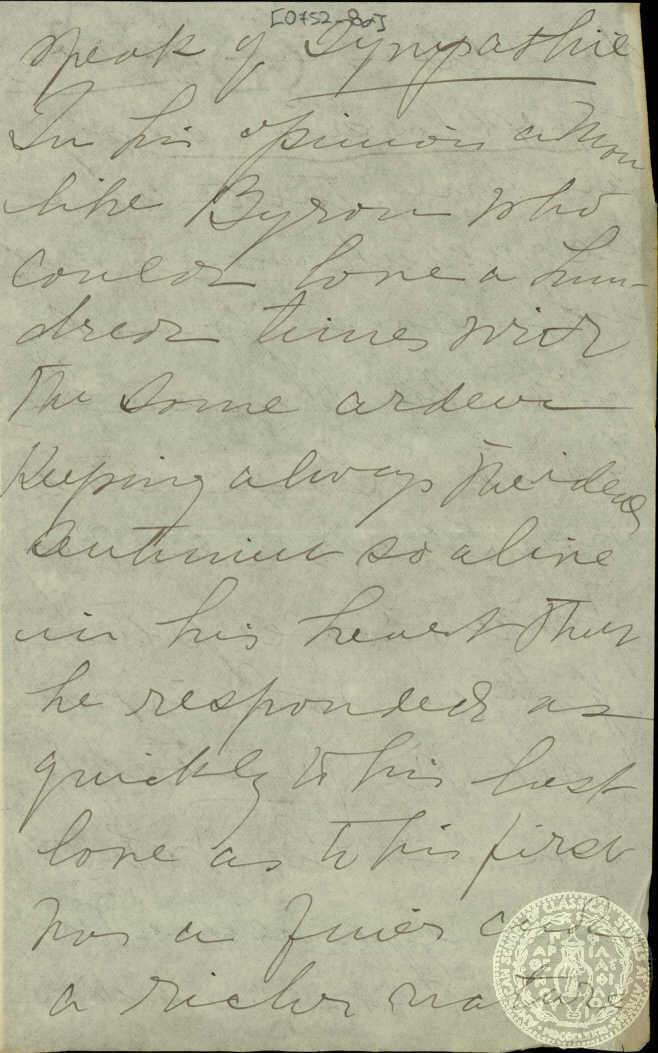 [0752-80]
speak of Sympathie
In his opinion a man
like Byron who
could love a hun-
dred times with
the same ardeur
Keeping always the ideal
sentiment so alive
in his heart that
he responded as
quickly to his last
love as to his first
was a finer and
a richer nature